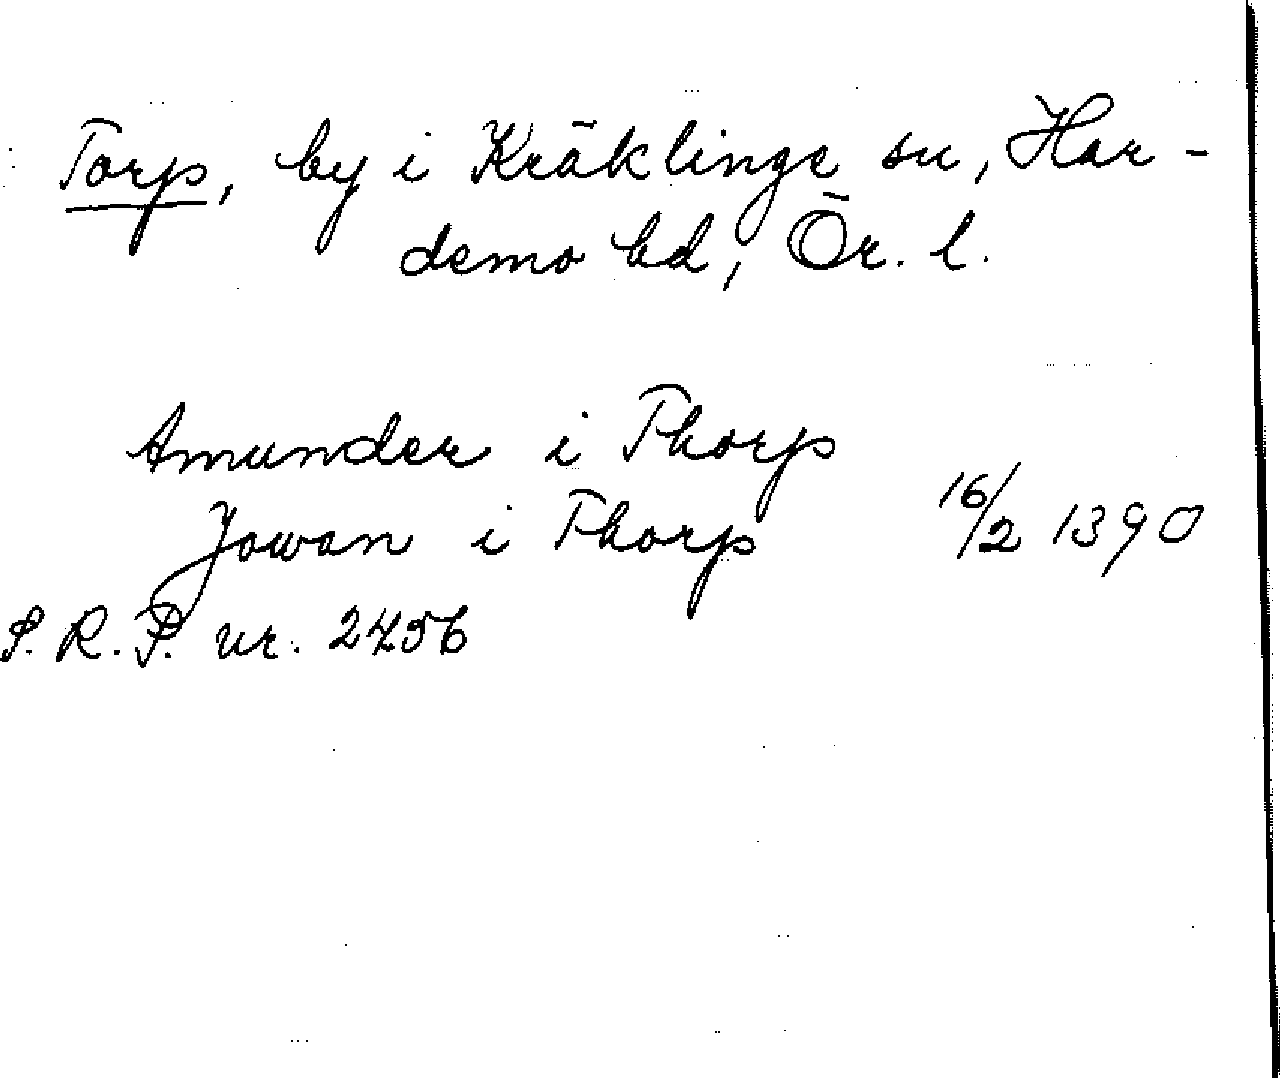 Torp, by i Kräklinge sn, Har-
demo hd, Ör. l.
Amunder i Thorp
Jowan i Thorp 16/2 1390
S. R. P. nr. 2456